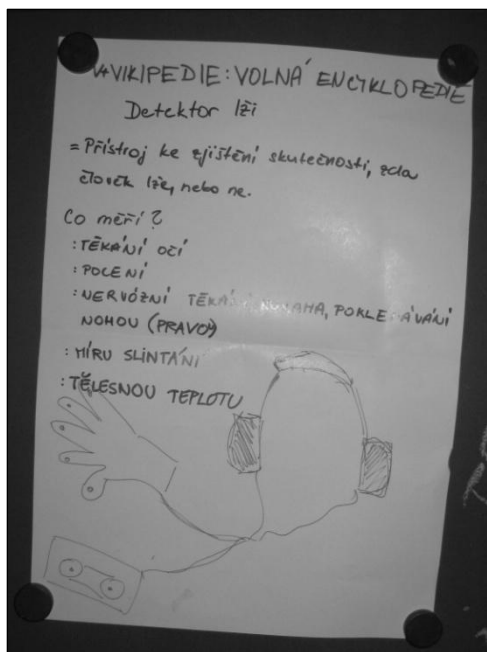 VIKIPEDIE: VOLNÁ ENCYKLOPEDIE
Detektor lži
= Přístroj ke zjištění skutečnosti, zda
člověk lže, nebo ne.
Co měří?
: TĚKÁNÍ OČÍ
: POCENÍ
: NERVÓZNÍ POKLEPÁVÁNÍ
NOHOU (PRAVOU)
: MÍRU SLINTÁNÍ
: TĚLESNOU TEPLOTU